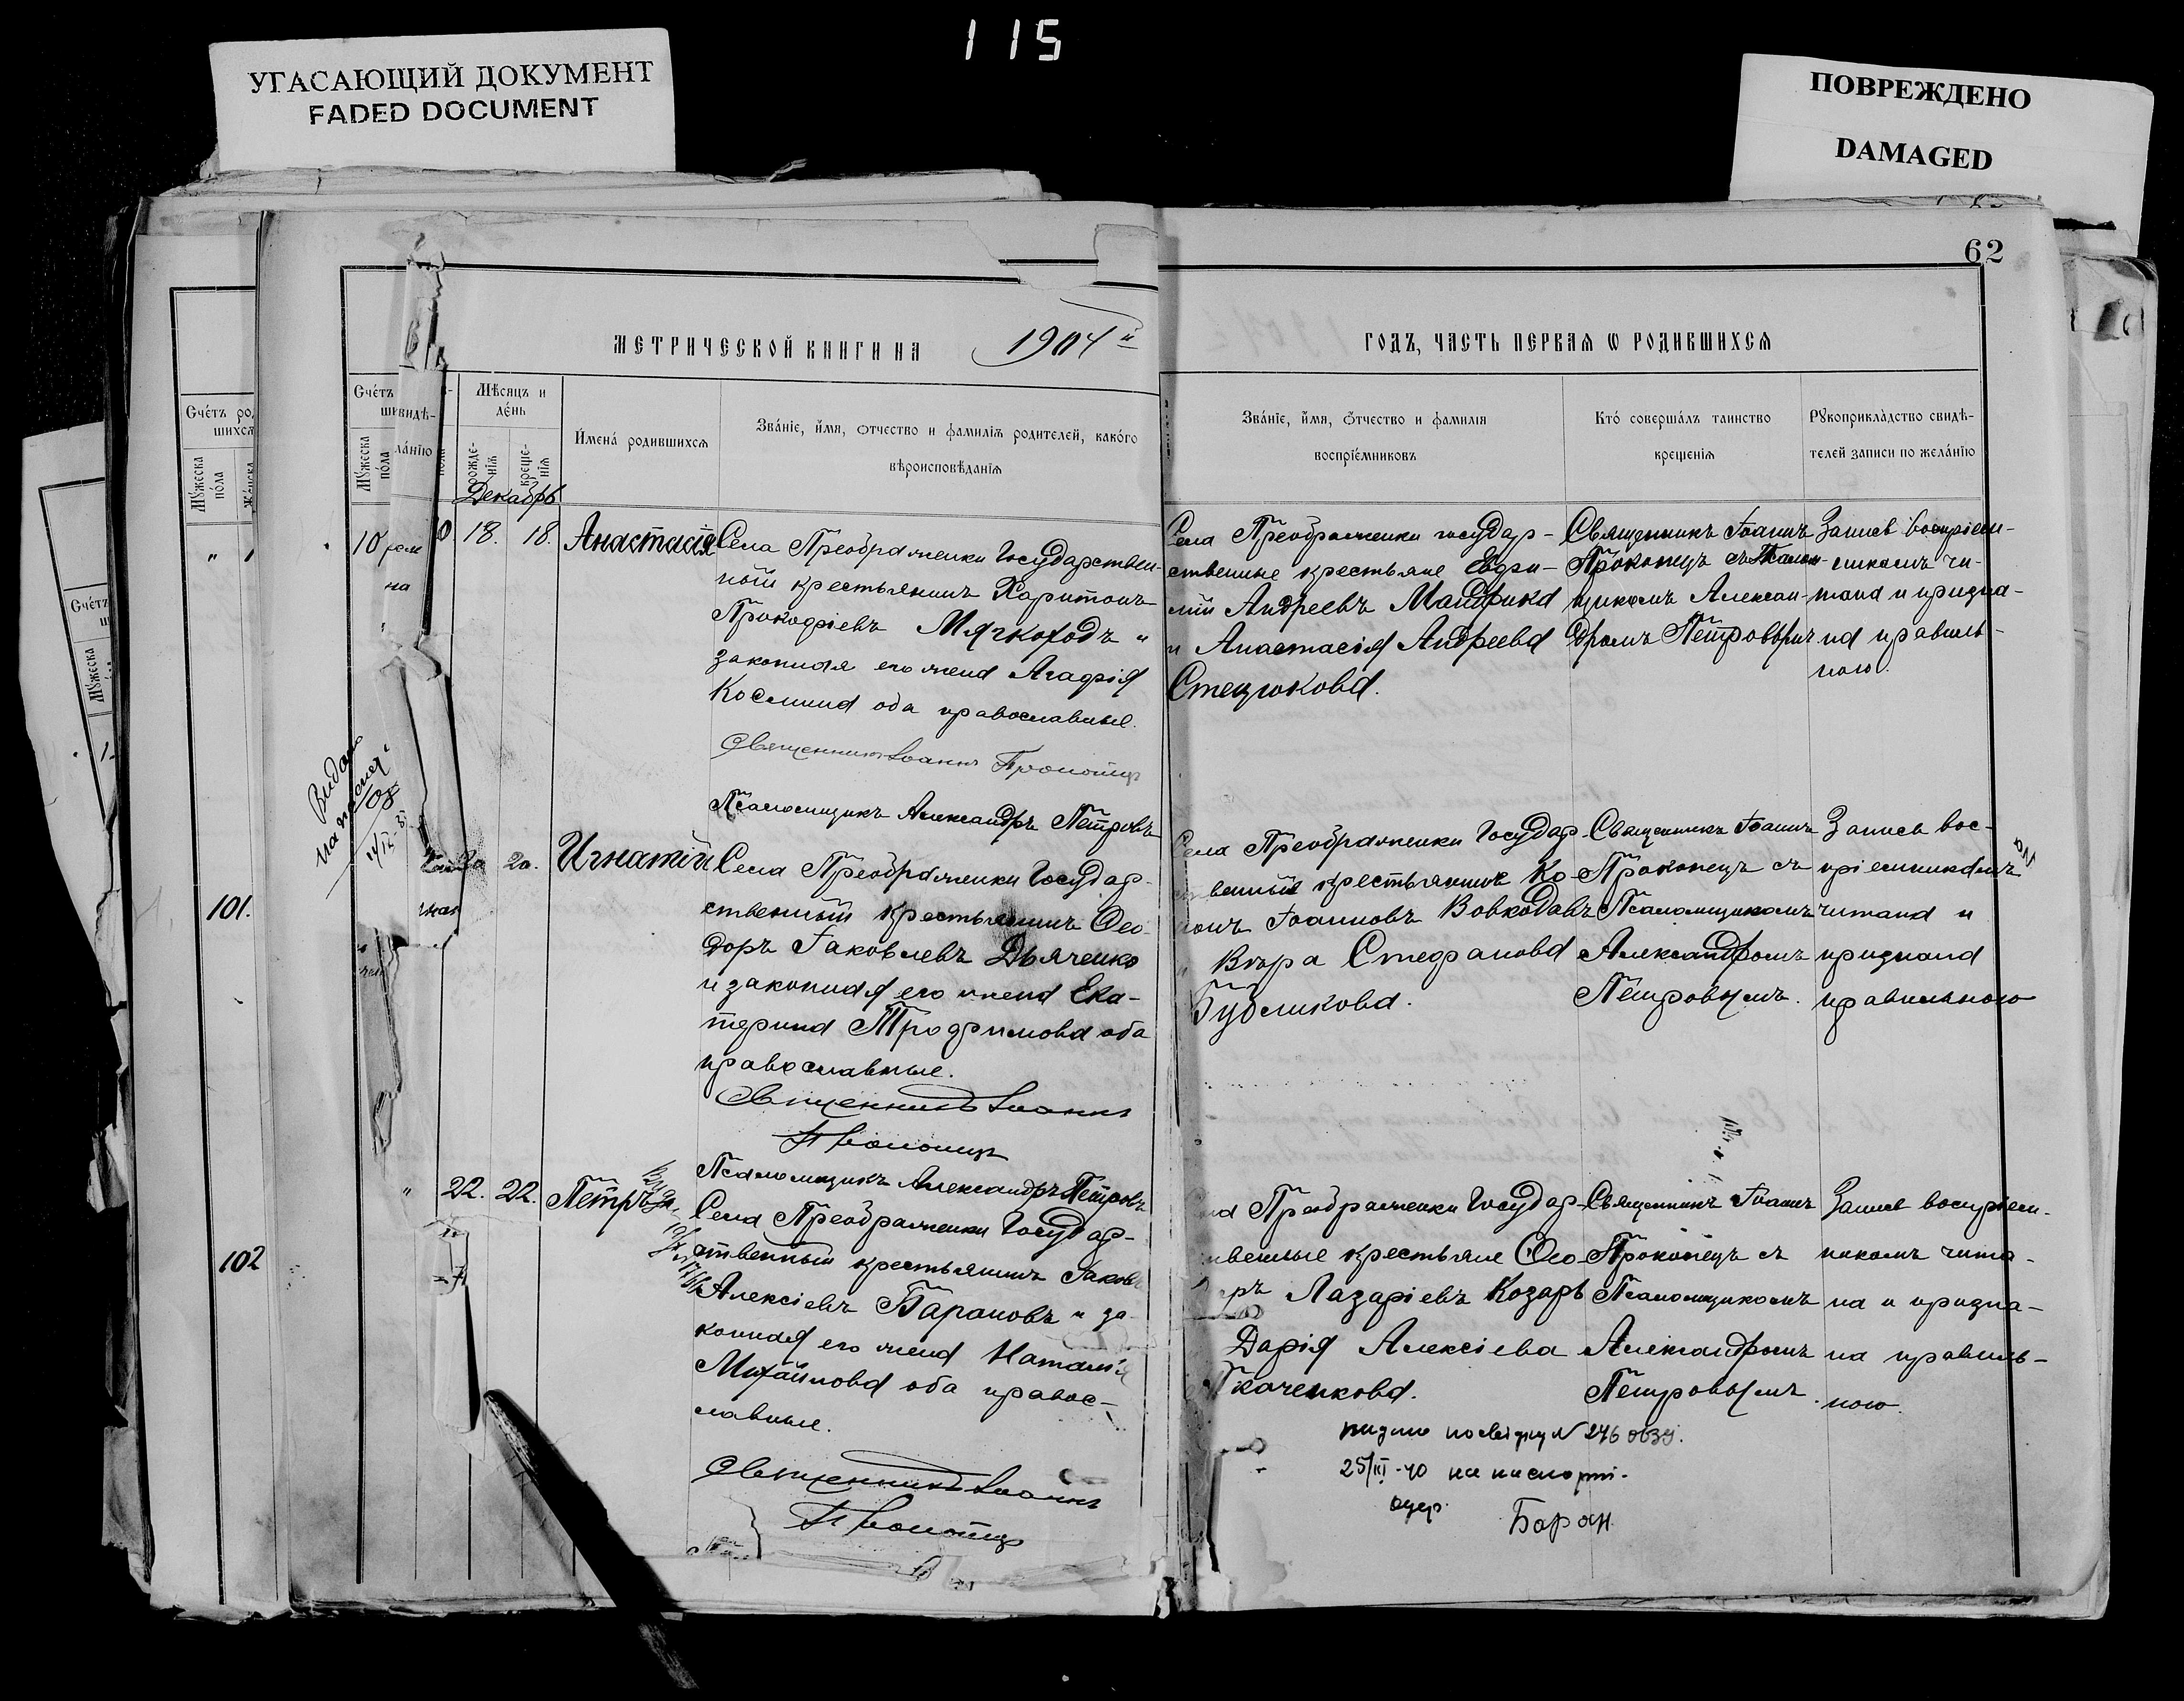 115
УГАСАЮЩИЙ ДОКУМЕНТ
FADED DOCUMENT
ПОВРЕЖДЕНО
DAMAGED
62
МЕТРИЧЕСКОЙ КНИГИ НА 1904й
ГОДЪ, ЧАСТЬ ПЕРВАЯ Ѡ РОДИВШИХСЯ
Счéтъ
Мѣсяцъ и
дéнь
Мꙋжеска
пóла
рожде-
нїя
креще-
нїя
Именá родившихсѧ
Звáнїе, и́мя, ѻтчество и фамилїѧ родителей, какóго
вѣроисповѣданїѧ
Звáнїе, и́мя, ѻтчество и фамилїя
воспрїéмниковъ
Ктó совершáлъ таинство
крещенїя
Рꙋкоприклàдство свидѣ-
телей записи по желáнїю
Декабрь
10
18.
18.
Анастасія
Села Преображенки Государствен-
ный крестьянинъ Харитонъ
Прокофіевъ Мягкоходъ и
законная его жена Агафія
Космина оба православные.
Священникъ Іоаннъ Прокопецъ
Псаломщикъ Александръ Петровъ
Села Преображенки государ-
ственные крестьяне Евфи-
мій Андреевъ Мандрика
и Анастасія Андреева
Стецюкова.
Священникъ Іоаннъ
Прокопецъ съ Псалом-
щикомъ Алексан-
дромъ Петровымъ
Запись воспріем-
никомъ чи-
тана и призна-
на правиль-
ною.
101.
20.
Игнатій
Села Преображенки Государ-
ственный крестьянинъ Ѳео-
доръ Іаковлевъ Дьяченко
и законная его жена Ека-
терина Трофимова оба
православные.
Священникъ Іоаннъ
Прокопецъ
Псаломщикъ Александръ Петровъ
Села Преображенки Государ-
венный крестьянинъ Ко-
нонъ Іоанновъ Вовкодавъ
Вѣра Стефанова
Бубликова.
Священникъ Іоаннъ
Прокопецъ съ
Псаломщикомъ
Александромъ
Петровымъ.
Запись вос-
пріемникомъ
читана и
признана
правильною
102
22.
22.
Петръ
Села Преображенки Государ-
ственный крестьянинъ Іаковъ
Алексіевъ Барановъ и за-
конная его жена Наталія
Михайлова оба правос-
лавные.
Священникъ Іоаннъ
Прокопецъ
Преображенки Государ-
венные крестьяне Ѳео-
Лазаріевъ Козарь
Дарія Алексіева
Ткаченкова.
Священникъ Іоаннъ
Прокопецъ съ
Псаломщикомъ
Александромъ
Петровымъ.
Запись воспріем-
никомъ чита-
на и призна-
на правиль-
ною.
видано посвідку № 246
25/III-40 на паспорті-
Баран